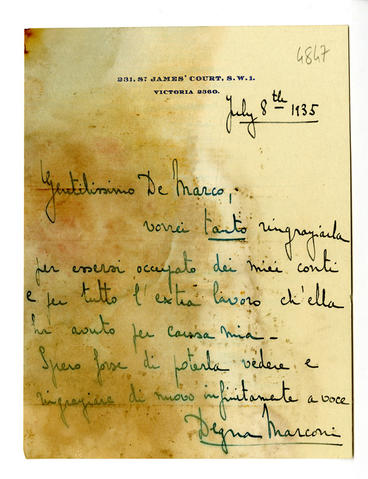 4847
231, ST JAMES' COURT, S.W.1.
VICTORIA 2360.
July 8th 1935
Gentilissimo De Marco,
vorrei tanto ringraziarla
per essersi occupato dei miei conti
e per tutto l'extra lavoro ch'ella
ha avuto per causa mia –
Spero forse di poterla vedere e
ringraziare di nuovo infinitamente a voce
Degna Marconi